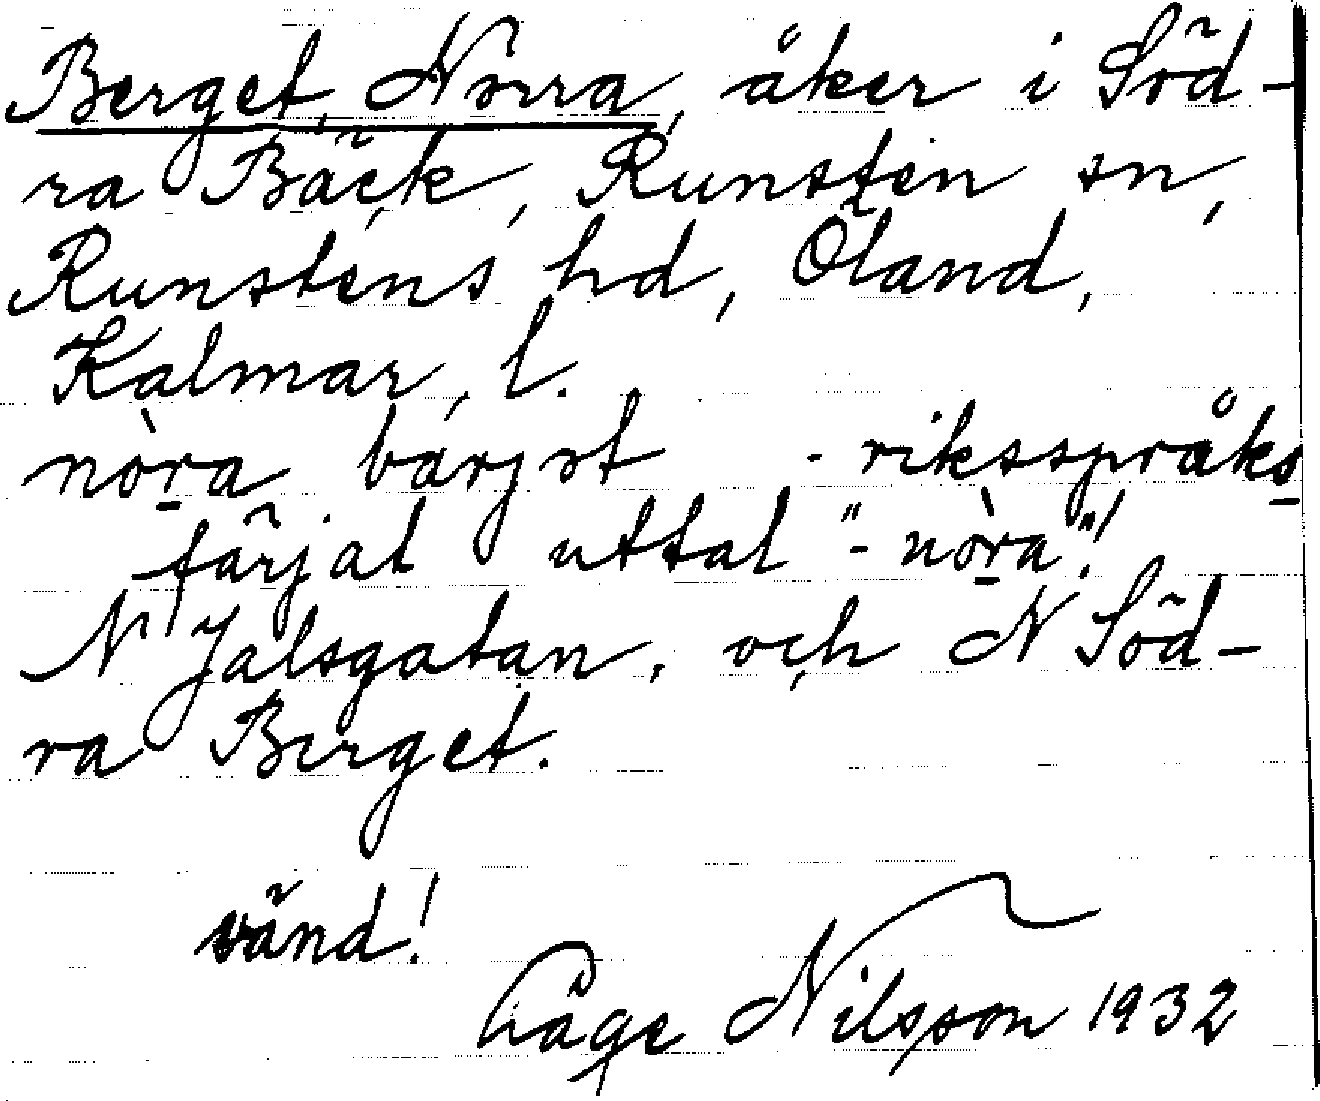 Berget, Norra, åker i Söd-
ra Bäck, Runsten sn,
Runstens hd, Öland,
Kalmar, l.
nòra bärjət - riksspråks
färjat uttal "- nòra"!
N Jalsgatan. och N Söd-
ra Berget.
vänd!
Åge Nilsson 1932